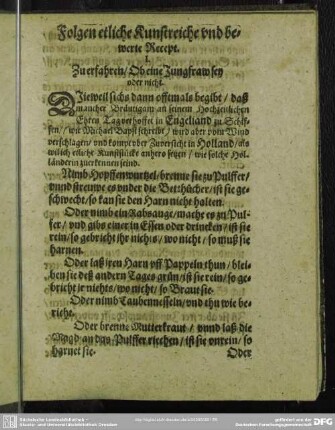 Folgen etliche Kunstreiche vnd be-
werte Recept.
I.
Zu erfahren / Ob eine Jungfraw sey
oder nicht.
DJeweil sichs dann offtmals begibt / daß
mancher Breutigam an seinem Hochzeitlichen
Ehren Tag verhoffet in Engelland zu Schif-
fen / wie Michael Bapst schreibt / wird aber vom Wind
verschlagen / vnd kompt ober Zuversicht in Holland / als
will ich etliche Kunststücke anhero setzen / wie solche Hol-
länderin zuerkennen seind.
Nimb Hopffenwurtzel / brenne sie zu Pulffer /
vnnd strewe es vnder die Betthücher / ist sie ge-
schwecht / so kan sie den Harn nicht halten.
Oder nimb ein Rabsauge / mache es zu Pul-
fer / vnd gibs einer in Essen oder drincken / ist sie
rein / so gebricht ihr nichts / wo nicht / so muß sie
harnen.
Oder laß jren Harn vff Pappeln thun / blei-
ben sie deß andern Tages grün / ist sie rein / so ge-
bricht jr nichts / wo nicht / so Braut sie.
Oder nimb Taubennesseln / vnd thu wie be-
richt.
Oder brenne Mutterkraut / vnnd laß die
Magd an das Pulffer riechen / ist sie vnrein / so
harnet sie.
Oder